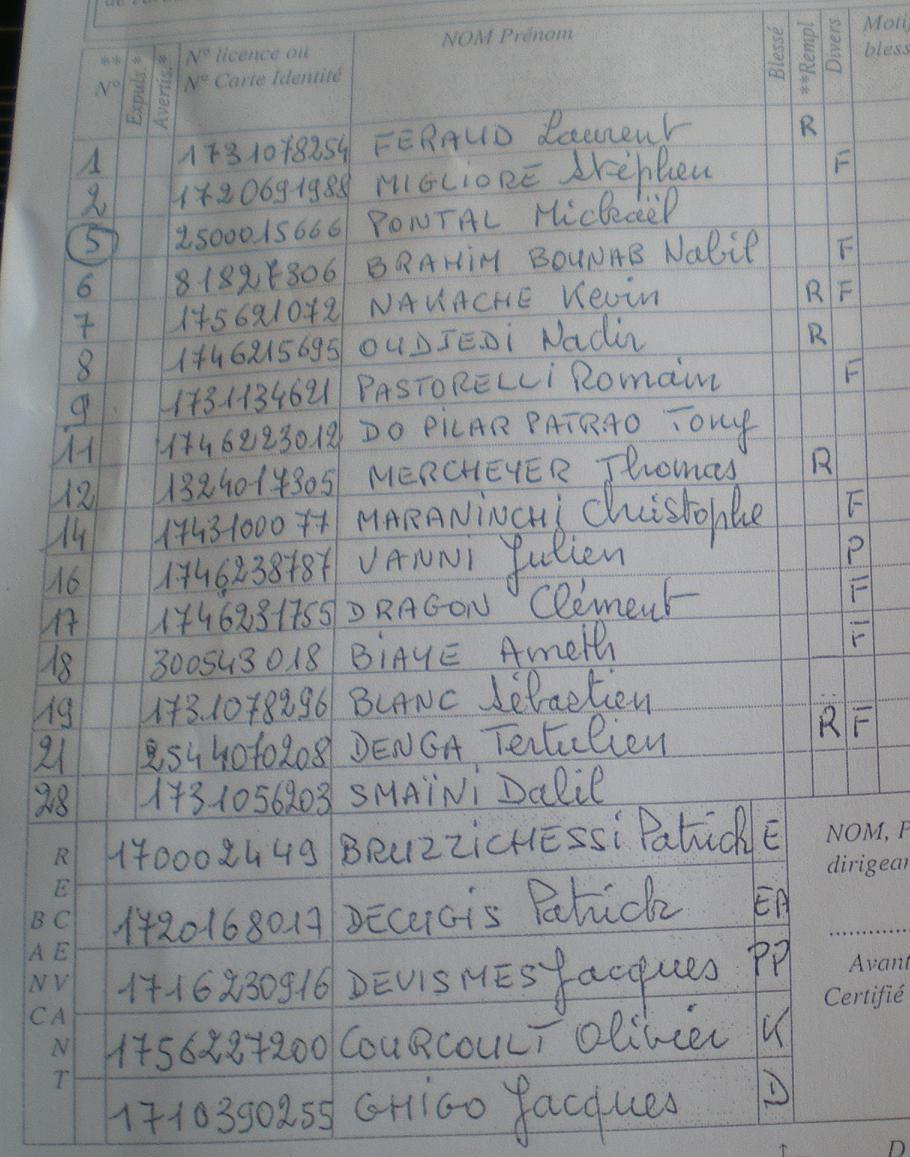 ** N° Expuls.* Avertis.* N° licence ou N° Carte Identité NOM Prénom Blessé **Rempl Divers
1 1731078254 FERAUD Laurent R
2 1720691988 MIGLIORE Stéphen F
5 2500015666 PONTAL Mickaël
6 81827306 BRAHIM BOUNAB Nabil F
7 175621072 NAKACHE Kevin R F
8 1746215695 OUDJEDI Nadir R
9 1731134621 PASTORELLI Romain F
11 1746223012 DO PILAR PATRAO Tony
12 1324017305 MERCHEYER Thomas R
14 1743100077 MARANINCHI Christophe F
16 1746238787 VANNI Julien P
17 1746231755 DRAGON Clément F
18 300543018 BIAYE Ameth F
19 1731078296 BLANC Sébastien
21 2544070208 DENGA Tertulien R F
28 1731056203 SMAÏNI Dalil
BANC RECEVANT
170002449 BRUZZICHESSI Patrick E
1720168017 DECUGIS Patrick EA
1716230916 DEVISMES Jacques PP
1756227200 COURCOULT Olivier K
1710390255 GHIGO Jacques D
NOM, P
dirigean
Avant
Certifié
D